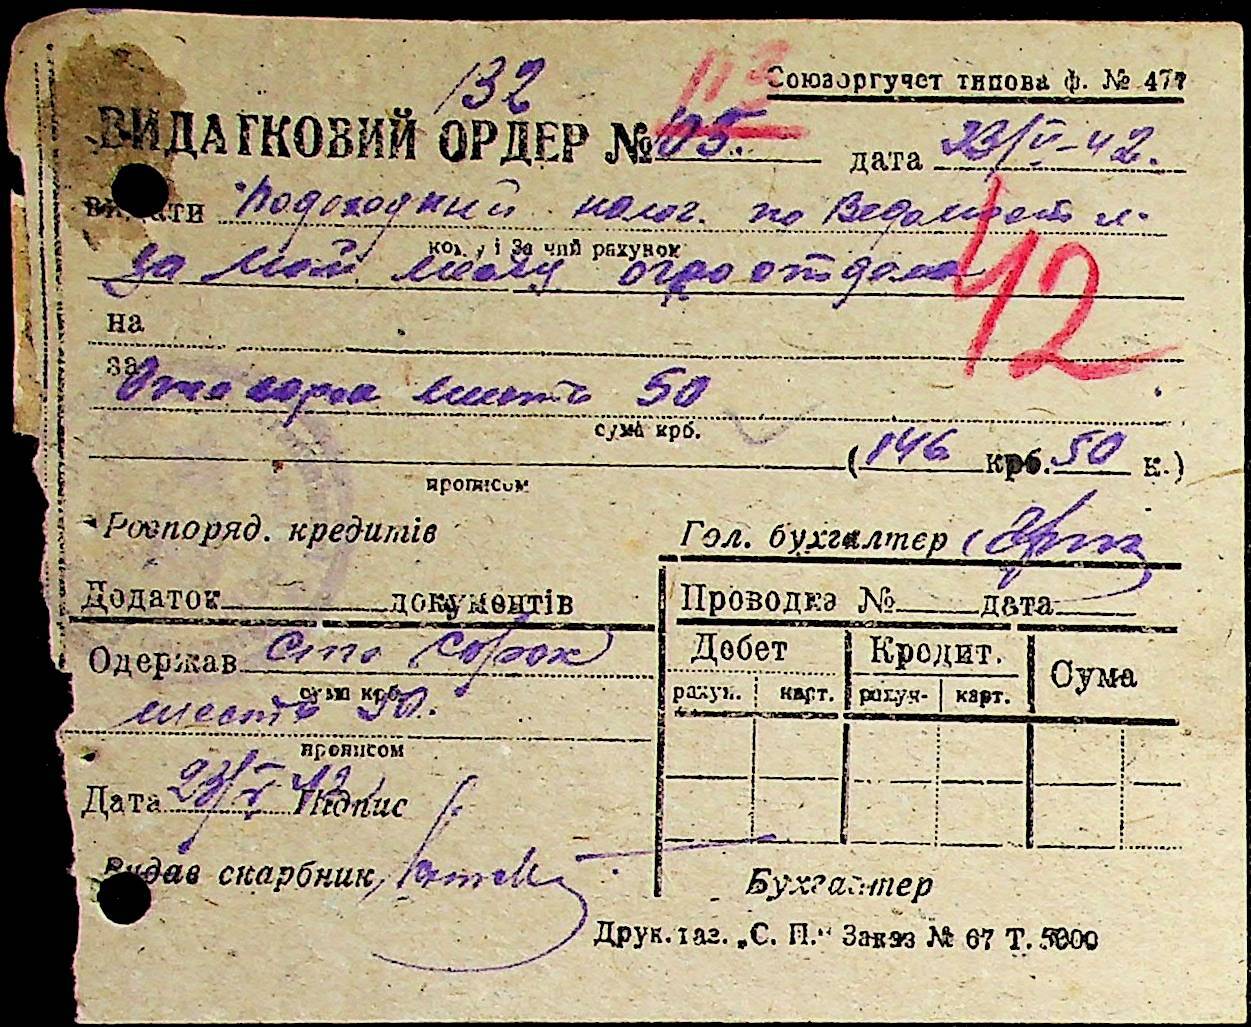 132
113
Союзоргучет типова ф. № 477
ВИДАТКОВИЙ ОРДЕР № 105. дата 23/V-42.
видати Подоходний налог. по Ведомост
кому і За чий рахунок
за май месяц агроотдела
42
на
за
Сто сорок шесть 50
сума крб.
(146 крб. 50 к.)
прописом
Розпоряд. кредитів
Гол. бухгалтер
Додаток документів
Проводка № дата
Одержав Сто сорок
Дебет Кредит. Сума
рахун. карт. рахун- карт.
сума крб.
шесть 50.
прописом
Дата 23/V 42 Підпис
Видав скарбник
Бухгалтер
Друк. газ. „С. П." Заказ № 67 Т. 5000